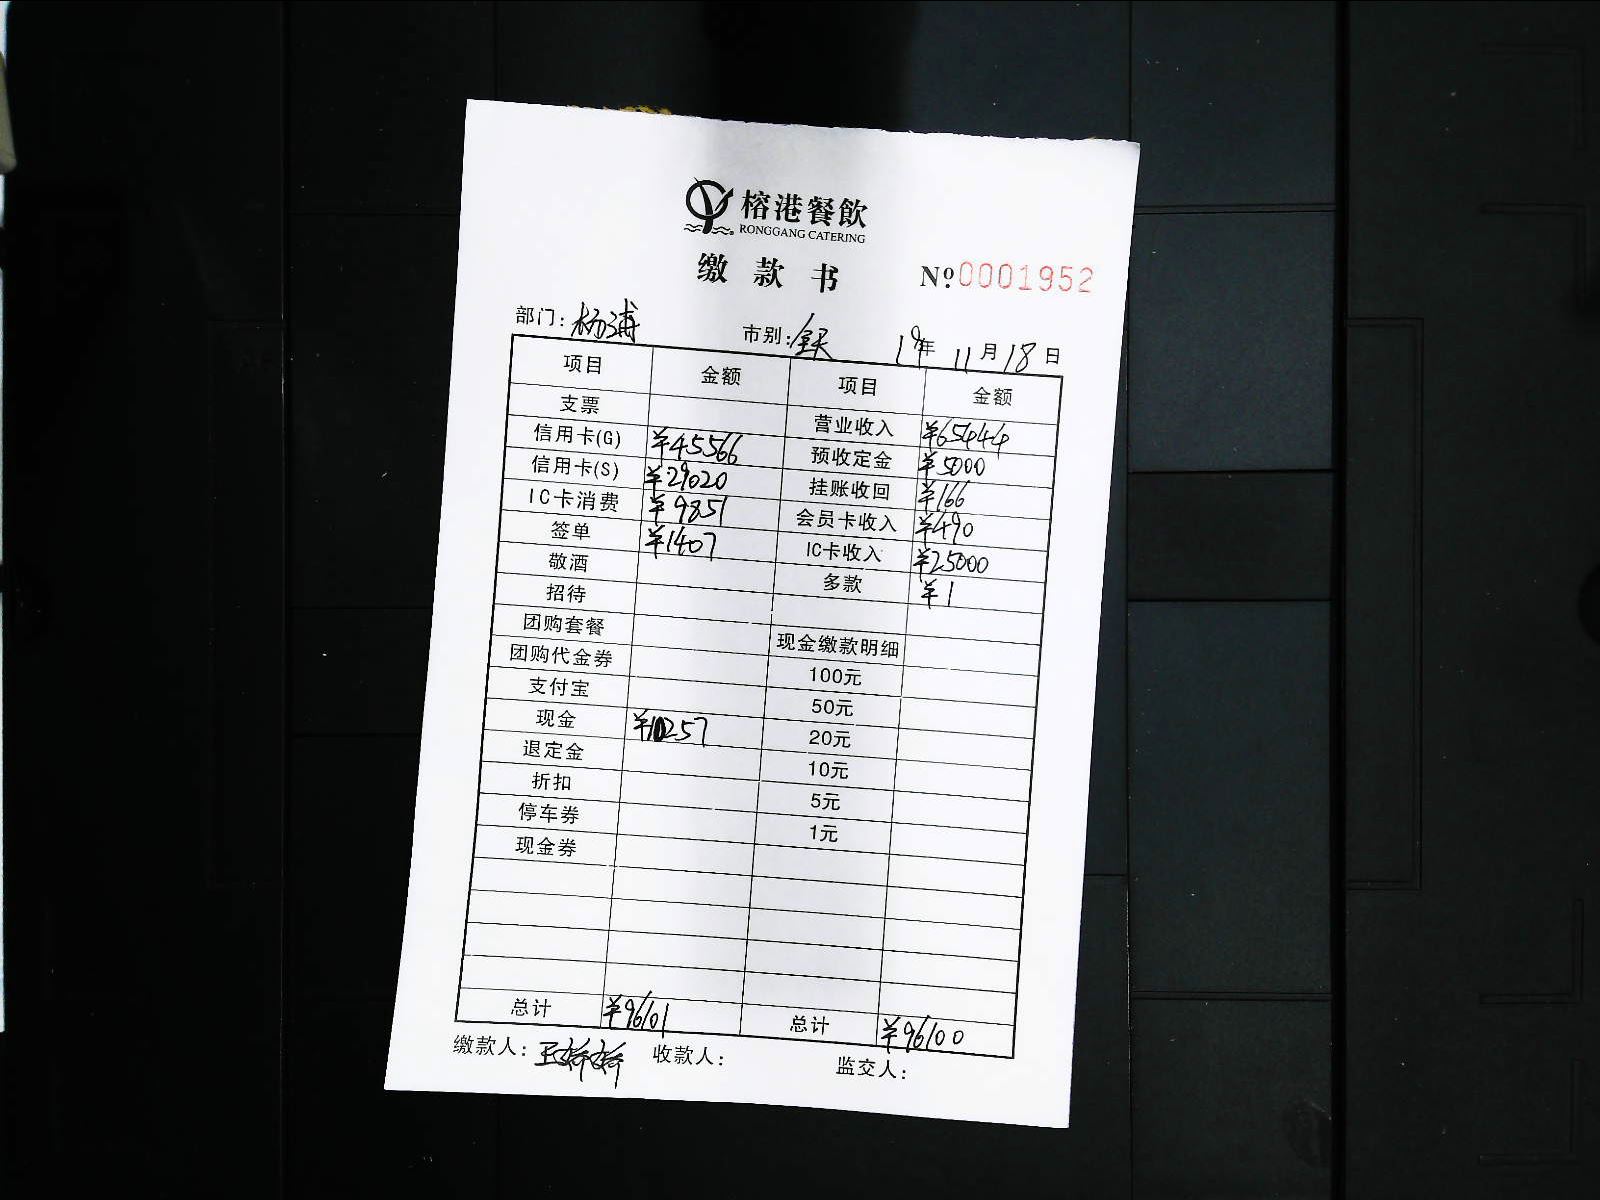 榕港餐飲
RONGGANG CATERING
缴款书 №0001952
部门：杨浦 市别：全天 19年11月18日
项目 金额 项目 金额
支票 营业收入 ¥65444
信用卡(G) ¥45566 预收定金 ¥5000
信用卡(S) ¥29020 挂账收回 ¥166
IC卡消费 ¥9851 会员卡收入 ¥490
签单 ¥1407 IC卡收入 ¥25000
敬酒 多款 ¥1
招待
团购套餐 现金缴款明细
团购代金券 100元
支付宝 50元
现金 ¥10257 20元
退定金 10元
折扣 5元
停车券 1元
现金券
总计 ¥96101 总计 ¥96100
缴款人：王娇娇 收款人： 监交人：